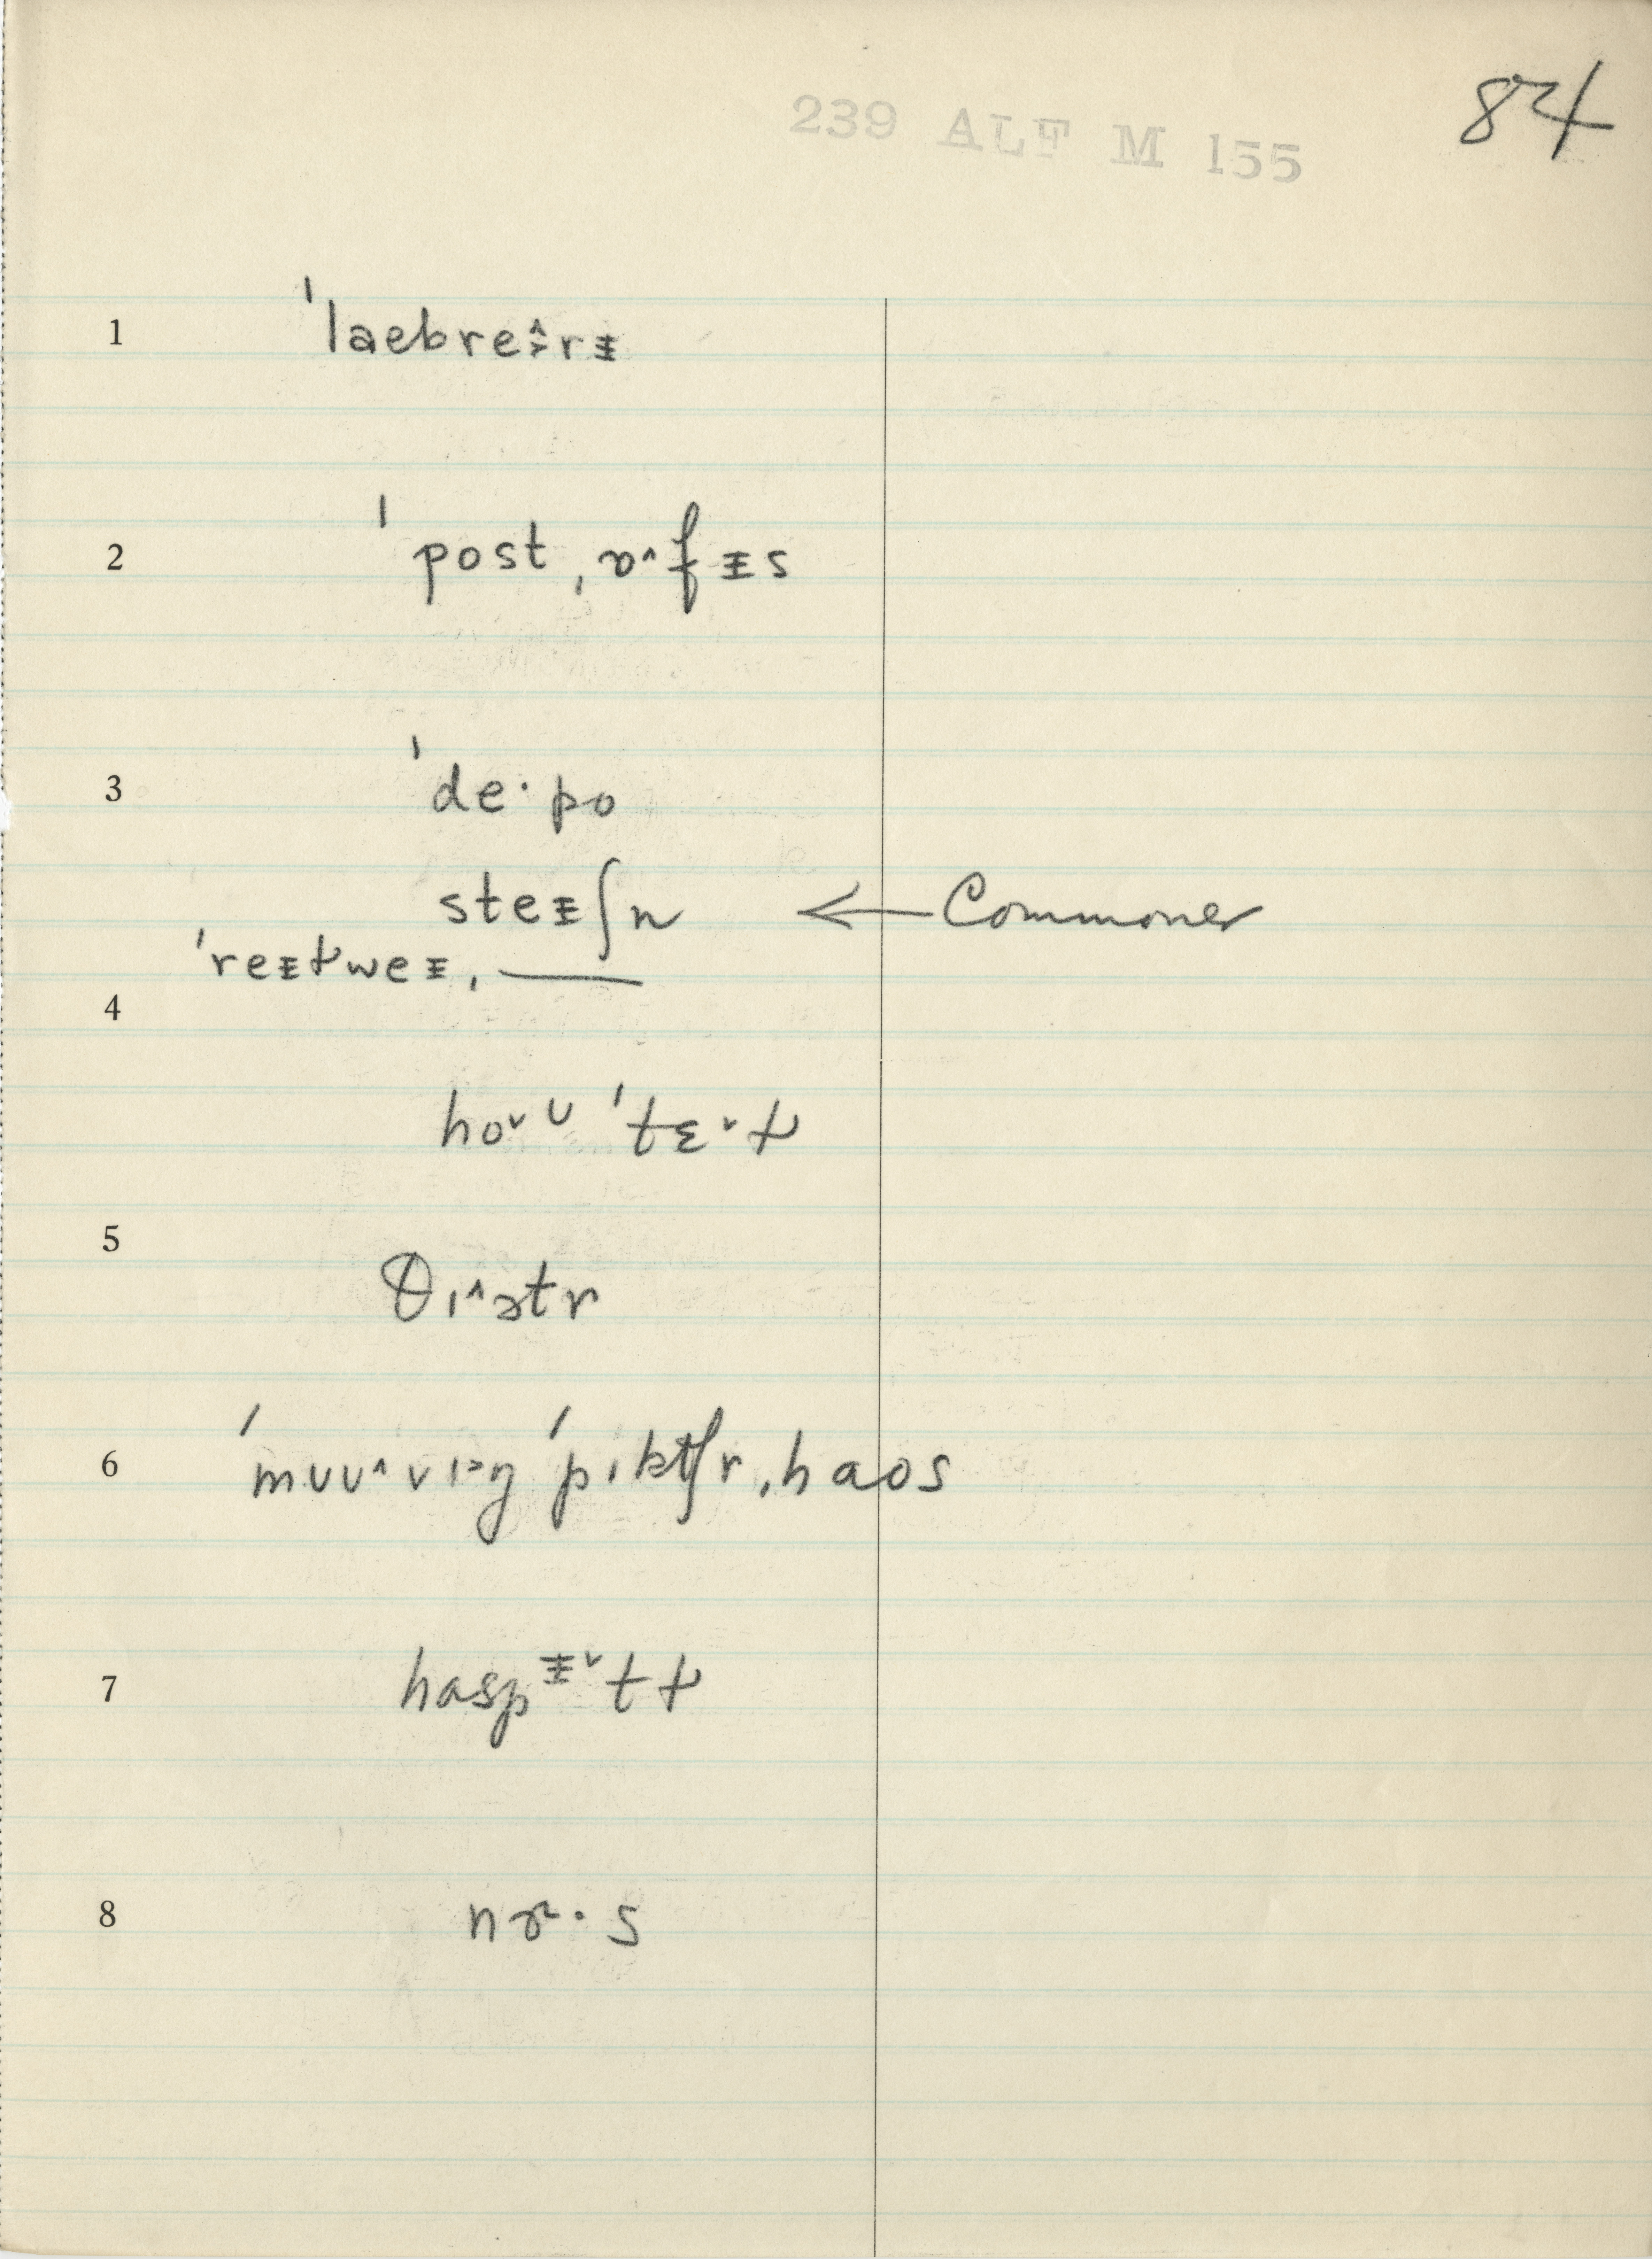 84
239 ALF M 155
1 ˈlaebreˑ̂rᵻ
2 ˈpost ˌɒ^fᵻs
3 ˈdeˑpo
steᵻʃn ← Commoner
ˈreᵻtweᵻˌ——
4
hoˇʊ ˈtɛˇɫ
5
θɪ^ətr
6 ˈmuʊ^vɪ>ŋ ˈpɪktʃrˌhaos
7 haspᵻˇtɫ
8 nɝ·s